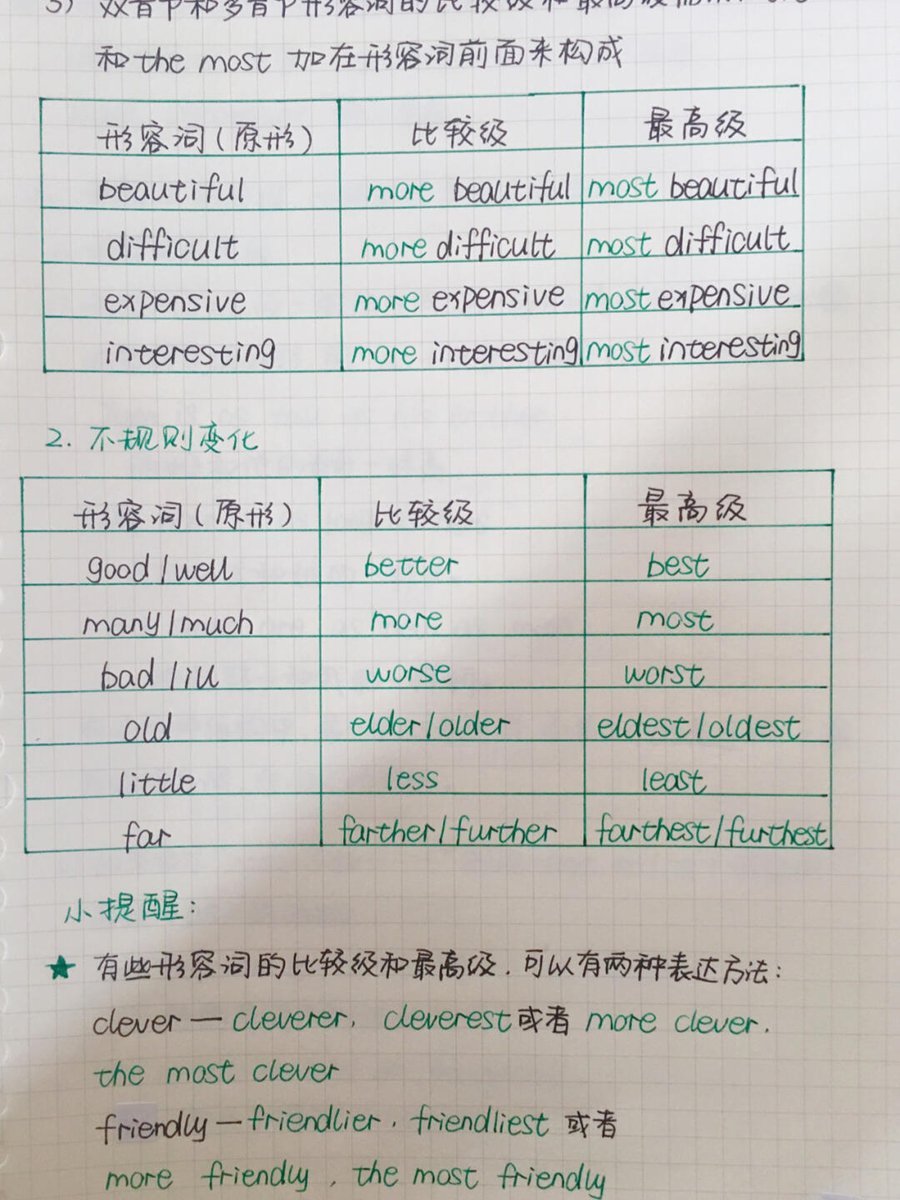 3) 双音节和多音节形容词的比较级和最高级
和 the most 加在形容词前面来构成
形容词(原形) 比较级 最高级
beautiful more beautiful most beautiful
difficult more difficult most difficult
expensive more expensive most expensive
interesting more interesting most interesting
2. 不规则变化
形容词(原形) 比较级 最高级
good/well better best
many/much more most
bad/ill worse worst
old elder/older eldest/oldest
little less least
far farther/further farthest/furthest
小提醒:
★ 有些形容词的比较级和最高级,可以有两种表达方法:
clever — cleverer, cleverest 或者 more clever,
the most clever
friendly — friendlier, friendliest 或者
more friendly, the most friendly